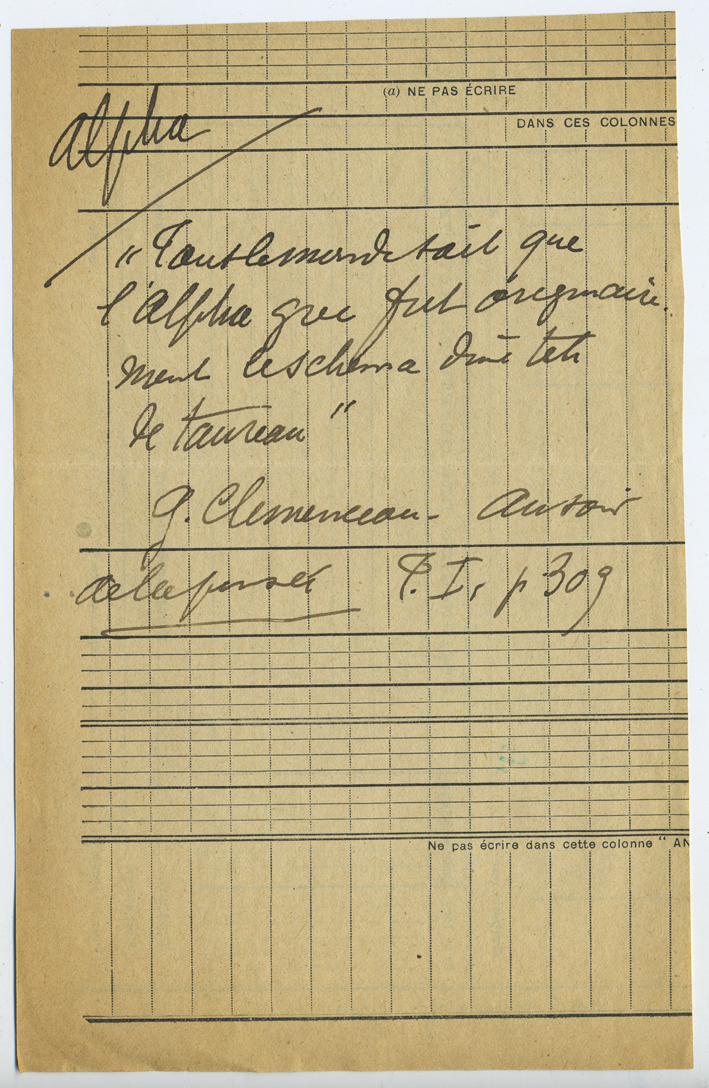 (a) NE PAS ÉCRIRE
DANS CES COLONNES
Alpha
"Tout le monde sait que
l'Alpha grec fut originaire-
ment le schema d'une tete
de taureau"
G. Clemenceau - Au soir
de la pensée T. I, p 309
Ne pas écrire dans cette colonne " AN